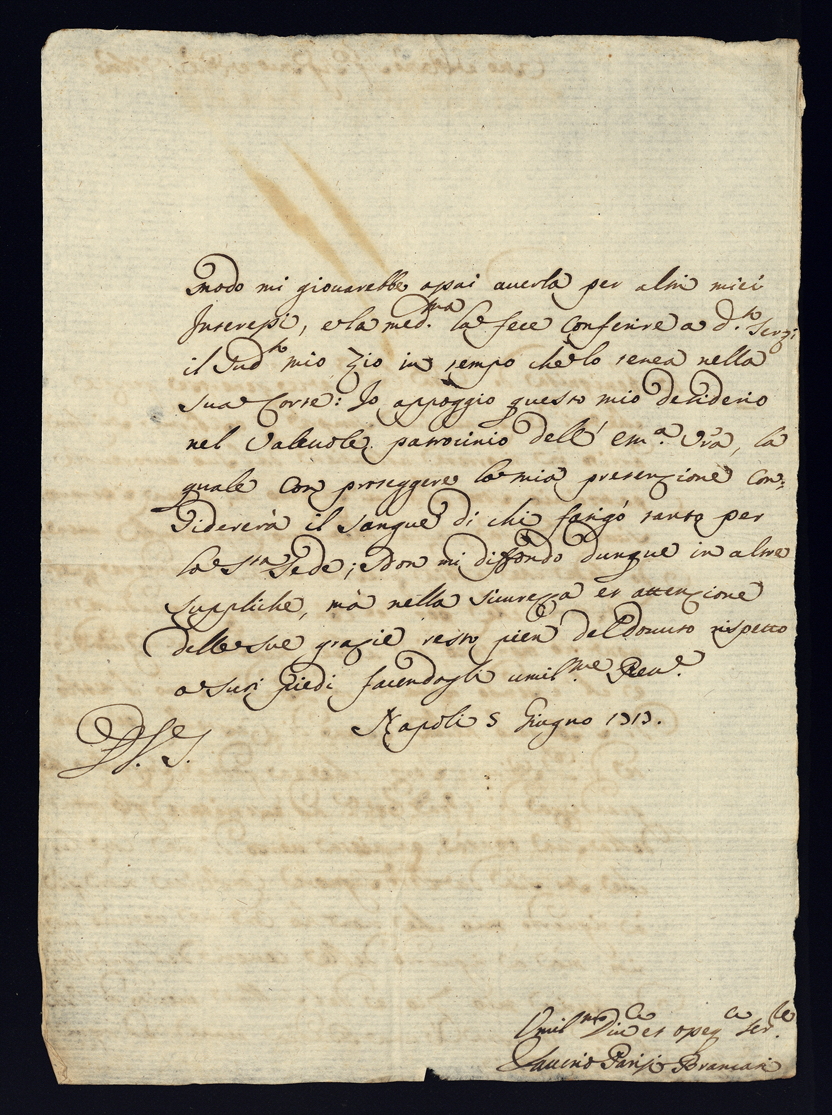 modo mi giovarebbe assai averla per altri miei
Interessi, e la med.ma la fece conferire a d.to Serg.i
il sud.to mio Zio in tempo che lo tenea nella
sua Corte: Io appoggio questo mio desiderio
nel valevole patrocinio dell' Em.a Vra, la
quale con proteggere la mia pretenzione con=
sidererà il sangue di chi fatigó tanto per
la Sta Sede; Non mi diffondo dunque in altre
suppliche, mà nella sicurezza et attenzione
delle sue grazie resto pien del dovuto rispetto
a suoi piedi facendogli umil.me Rev.e
Napoli 5 Giugno 1713.
D. V. E.
Umil.mo Div.o et Obeg.o Ser.le
Saverio Parisi Brancati